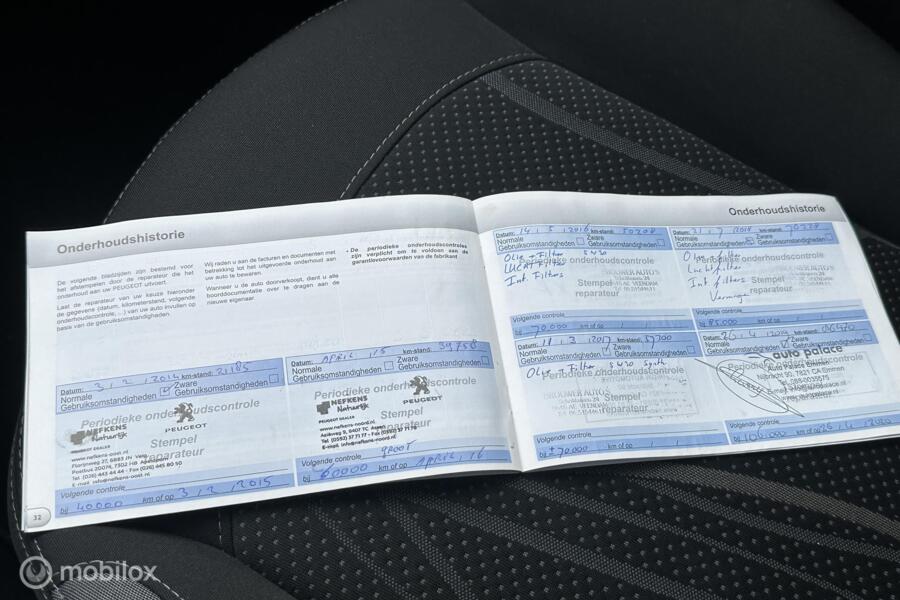 Onderhoudshistorie
De volgende bladzijden zijn bestemd voor
het afstempelen door de reparateur die het
onderhoud aan uw PEUGEOT uitvoert.
Laat de reparateur van uw keuze hieronder
de gegevens (datum, kilometerstand, volgende
onderhoudscontrole, ...) van uw auto invullen op
basis van de gebruiksomstandigheden.
Wij raden u aan de facturen en documenten met
betrekking tot het uitgevoerde onderhoud aan
uw auto te bewaren.
Wanneer u de auto doorverkoopt, dient u alle
boorddocumentatie over te dragen aan de
nieuwe eigenaar.
- De periodieke onderhoudscontroles
zijn verplicht om te voldoen aan de
garantievoorwaarden van de fabrikant
Datum: 3 / 2 / 2014 km-stand: 21185
Normale Zware
Gebruiksomstandigheden Gebruiksomstandigheden
Periodieke onderhoudscontrole
NEFKENS
Natuurlijk
PEUGEOT
PEUGEOT DEALER
Stempel
reparateur
www.nefkens-oost.nl
Tel. (026) 443 44 44 - Fax (026) 445 80 50
E-mail: info@nefkens-oost.nl
Volgende controle
bij 40000 km of op 3 / 2 / 2015
Datum: APRIL / 15 km-stand: 39758
Normale Zware
Gebruiksomstandigheden Gebruiksomstandigheden
Periodieke onderhoudscontrole
NEFKENS
Natuurlijk
PEUGEOT
PEUGEOT DEALER
Stempel
reparateur
www.nefkens-noord.nl
Volgende controle GROOT
bij 60000 km of op APRIL / 16
32
Onderhoudshistorie
Datum: 14 / 5 / 2016 km-stand: 50208
Normale Zware
Gebruiksomstandigheden Gebruiksomstandigheden
Periodieke onderhoudscontrole
Olie + Filter 5W30
LUCHT Filter
Int. Filters
Stempel
reparateur
Volgende controle
bij 70.000 km of op / /
Datum: 31 / 7 / 2018 km-stand:
Normale Zware
Gebruiksomstandigheden Gebruiksomstandigheden
Periodieke onderhoudscontrole
Luchtfilter
Int. filters
Stempel
reparateur
Volgende controle
bij 85.000 km of op / /
Datum: / 3 / 2017 km-stand: 57700
Normale Zware
Gebruiksomstandigheden Gebruiksomstandigheden
Olie + Filter 5W30
Periodieke onderhoudscontrole
Stempel
reparateur
Volgende controle
bij ± 70.000 km of op / /
Datum: 26 / 4 / km-stand: 86470
Normale Zware
Gebruiksomstandigheden Gebruiksomstandigheden
auto palace
Auto Palace Emmen
Nijbracht 90, 7821 CA Emmen
www.autopalace.nl
Volgende controle
bij 106.000 km of op 26 / 4 / 2020
mobilox